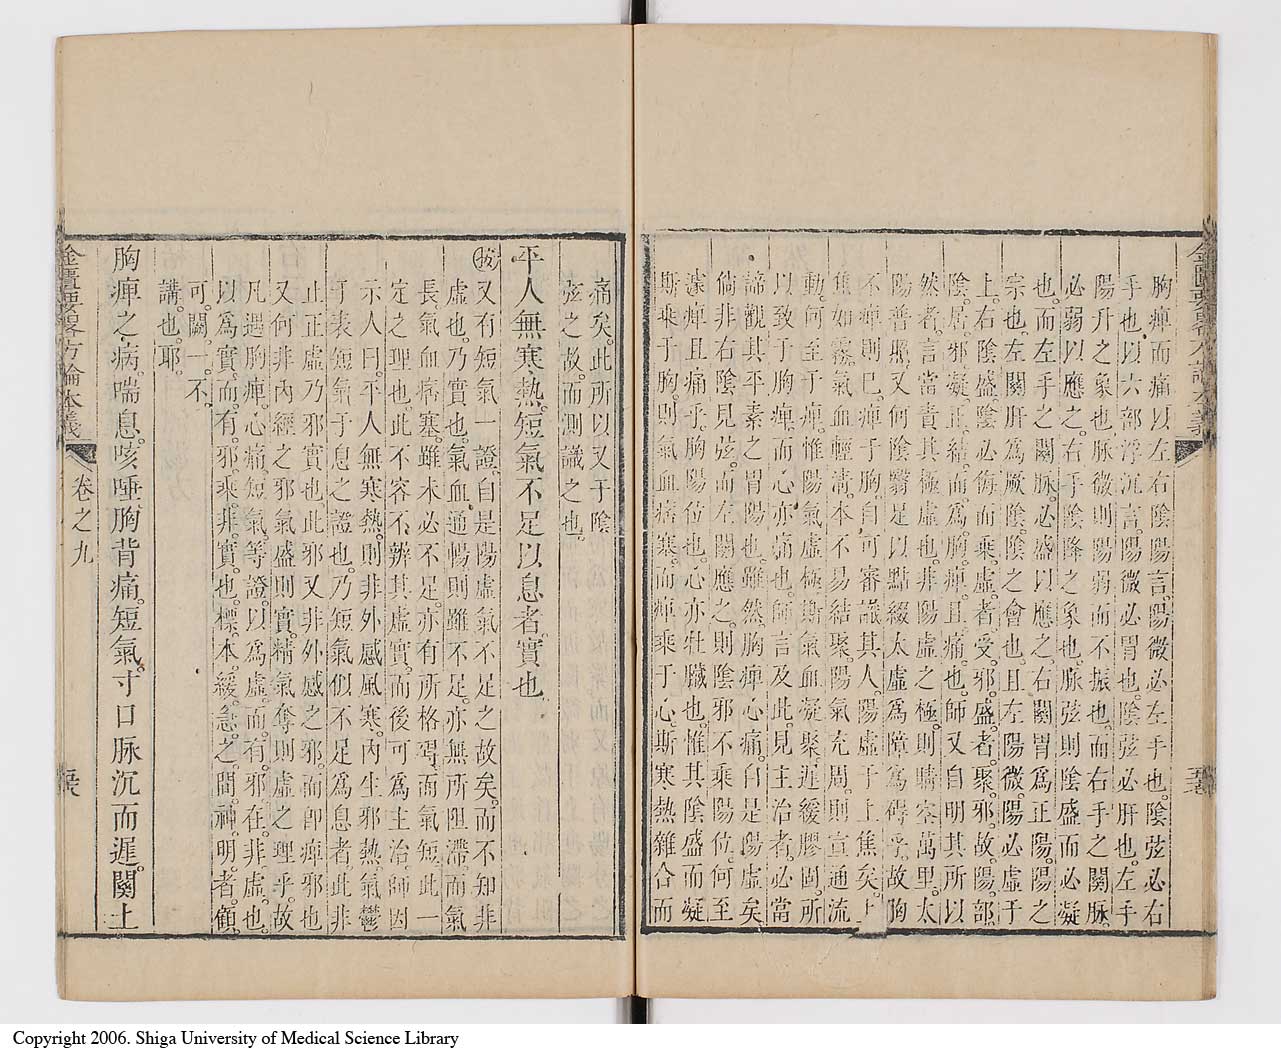 胸痺而痛以左右陰陽言。陽微必左手也。陰弦必右
手也。以六部浮沉言。陽微必胃也。陰弦必肝也。左手
陽升之象也。脉微則陽弱而不振也。而右手之關脉。
必弱以應之。右手陰降之象也。脉弦則陰盛而必凝
也。而左手之關脉。必盛以應之。右關胃爲正陽。陽之
宗也。左關肝爲厥陰。陰之會也。且左陽微。陽必虛于
上。右陰盛。陰必侮而乘。虛者受邪。盛者聚邪。故陽部
陰居。邪凝正結。而爲胸痺且痛也。師又自明其所以
然者。言當責其極虛也。非陽虛之極。則晴空萬里。太
陽普照。又何陰翳足以點綴太虛爲障爲碍乎。故胸
不痺則已。痺于胸。自可審識其人。陽虛于上焦矣。上
焦如霧。氣血輕清。本不易結聚。陽氣充周。則宣通流
動。何至于痺。惟陽氣虛極。斯氣血凝聚。遲緩膠固。所
以致于胸痺。而心亦痛也。師言及此。見主治者。必當
諦觀其平素之胃陽也。雖然。胸痺心痛。自是陽虛矣。
倘非右陰見弦。而左關應之。則陰邪不乘陽位。何至
遽痺且痛乎。胸陽位也。心亦牡臟也。惟其陰盛而凝。
斯乘于胸。則氣血痞塞。而痺乘于心。斯寒熱雜合而
痛矣。此所以又于陰
弦之故。而測識之也。
平人無寒熱。短氣不足以息者。實也。
按又有短氣一證。自是陽虛氣不足之故矣。而不知非
虛也。乃實也。氣血通暢。則雖不足。亦無所阻滯。而氣
長。氣血痞塞。雖未必不足。亦有所格碍。而氣短。此一
定之理也。此不容不辨其虛實。而後可爲主治。師因
示人曰。平人無寒熱。則非外感風寒。內生邪熱。氣鬱
于表。短氣于息之證也。乃短氣似不足爲息者。此非
止正虛。乃邪實也。此邪又非外感之邪。而即痺邪也。
又何非內經之邪氣盛則實。精氣奪則虛之理乎。故
凡遇胸痺。心痛。短氣。等證。以爲虛。而有邪在。非虛也。
以爲實。而有邪乘。非實也。標本緩急之間。神明者。顧
可闕一。不
講也耶。
胸痺之病。喘息。咳唾。胸背痛。短氣。寸口脉沉而遲。關上
金匱要畧方論本義
卷之九